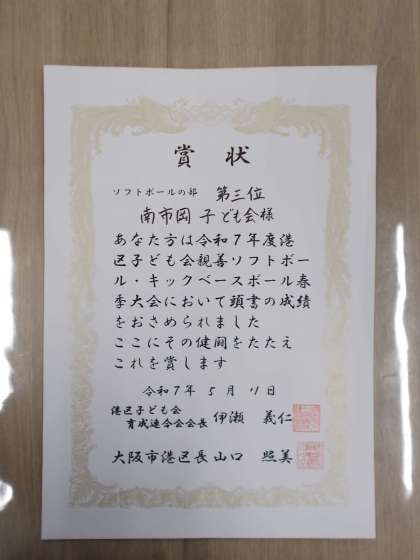 賞状
ソフトボールの部 第三位
南市岡 子ども会様
あなた方は令和7年度港
区子ども会親善ソフトボー
ル・キックベースボール春
季大会において頭書の成績
をおさめられました
ここにその健闘をたたえ
これを賞します
令和7年 5月 11日
港区子ども会
育成連合会会長 伊瀬 義仁
大阪市港区長 山口 照美